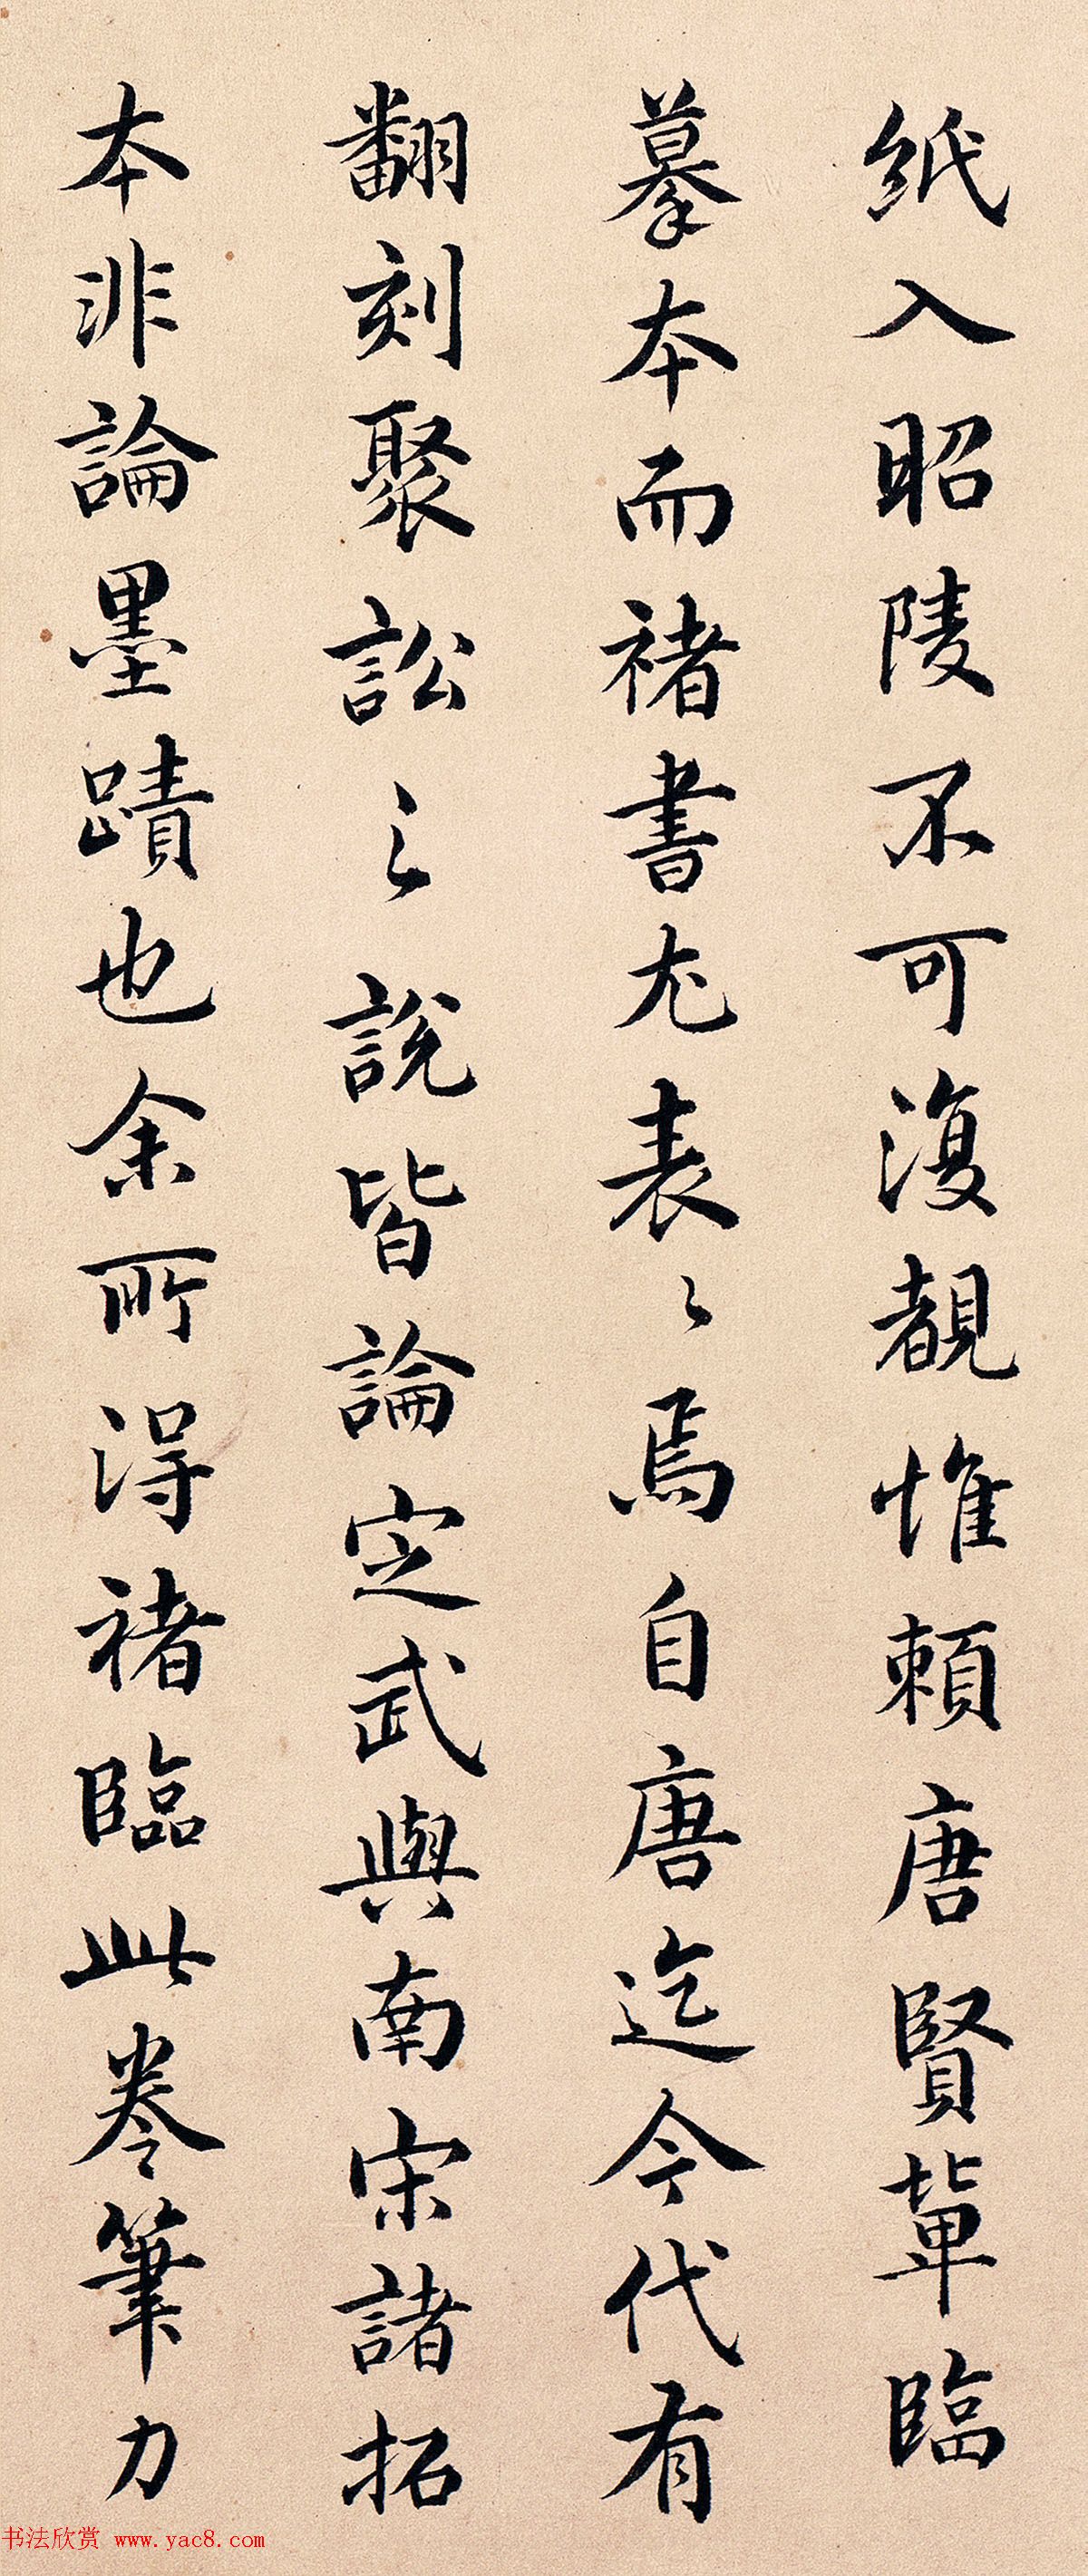 紙入昭陵不可復覩惟賴唐賢輩臨
摹本而褚書尤表〻焉自唐迄今代有
翻刻聚訟之說皆論定武與南宋諸拓
本非論墨蹟也余所得褚臨此卷筆力
书法欣赏 www.yac8.com